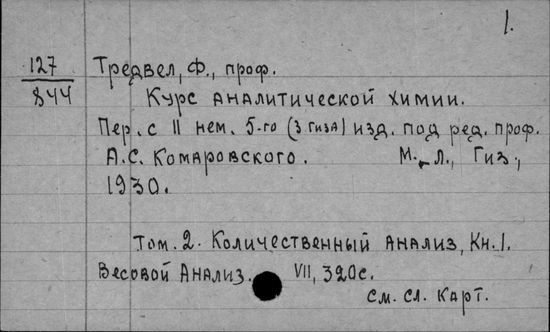 1.
127 Тредвел, Ф., проф.
844 Курс аналитической химии.
Пер. с 11 нем. 5-го (3 гиза) изд. под ред. проф.
А.С. Комаровского. М.-Л., Гиз,
1930.
Том. 2. Количественный анализ, Кн. 1.
Весовой Анализ. VII, 320с.
См. сл. карт.